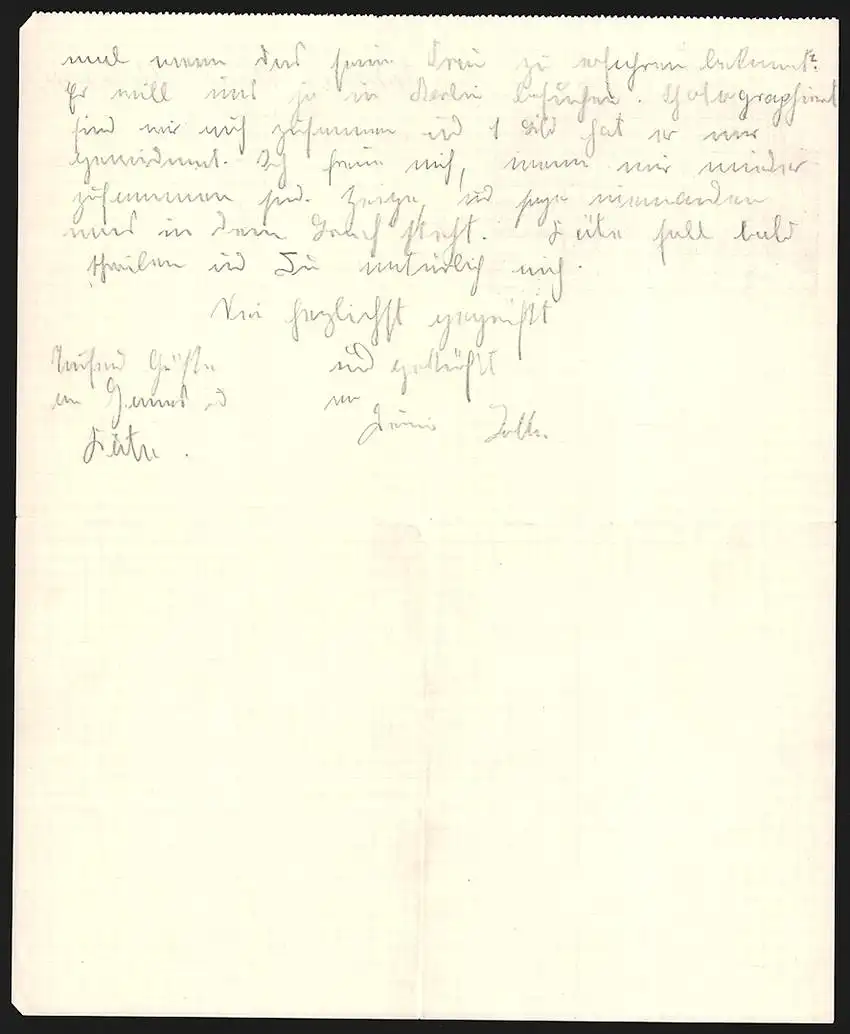 mal wenn das seine Frau zu erfahren bekommt?
Er will uns ja in Berlin besuchen. Photographiert
sind wir auch zusammen und 1 Bild hat er mir
gewidmet. Ich freue mich, wenn wir wieder
zusammen sind. Zeige und sage niemanden
was in dem Brief steht. Käte soll bald
schreiben und Du natürlich auch.
Sei herzlichst gegrüßt
und geküßt
von
Deine
Tausend Grüße
an und
Käte.